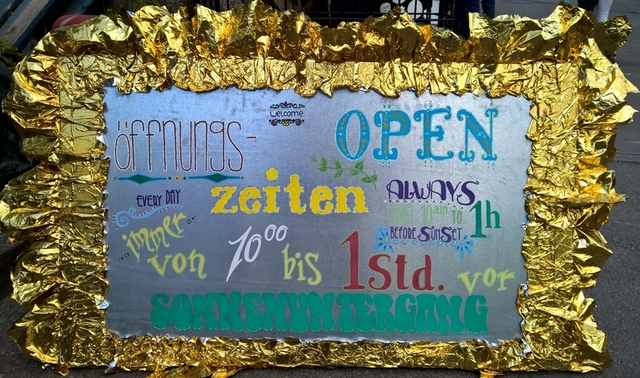 welcome
öffnungs-
zeiten
immer
von 10⁰⁰ bis 1 Std. vor
SONNENUNTERGANG
OPEN
EVERY DAY
ALWAYS
FROM 10am TO 1h
BEFORE SUNSET